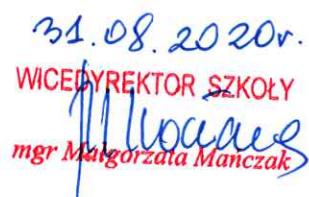 31.08.2020r.
WICEDYREKTOR SZKOŁY
mgr Małgorzata Mańczak